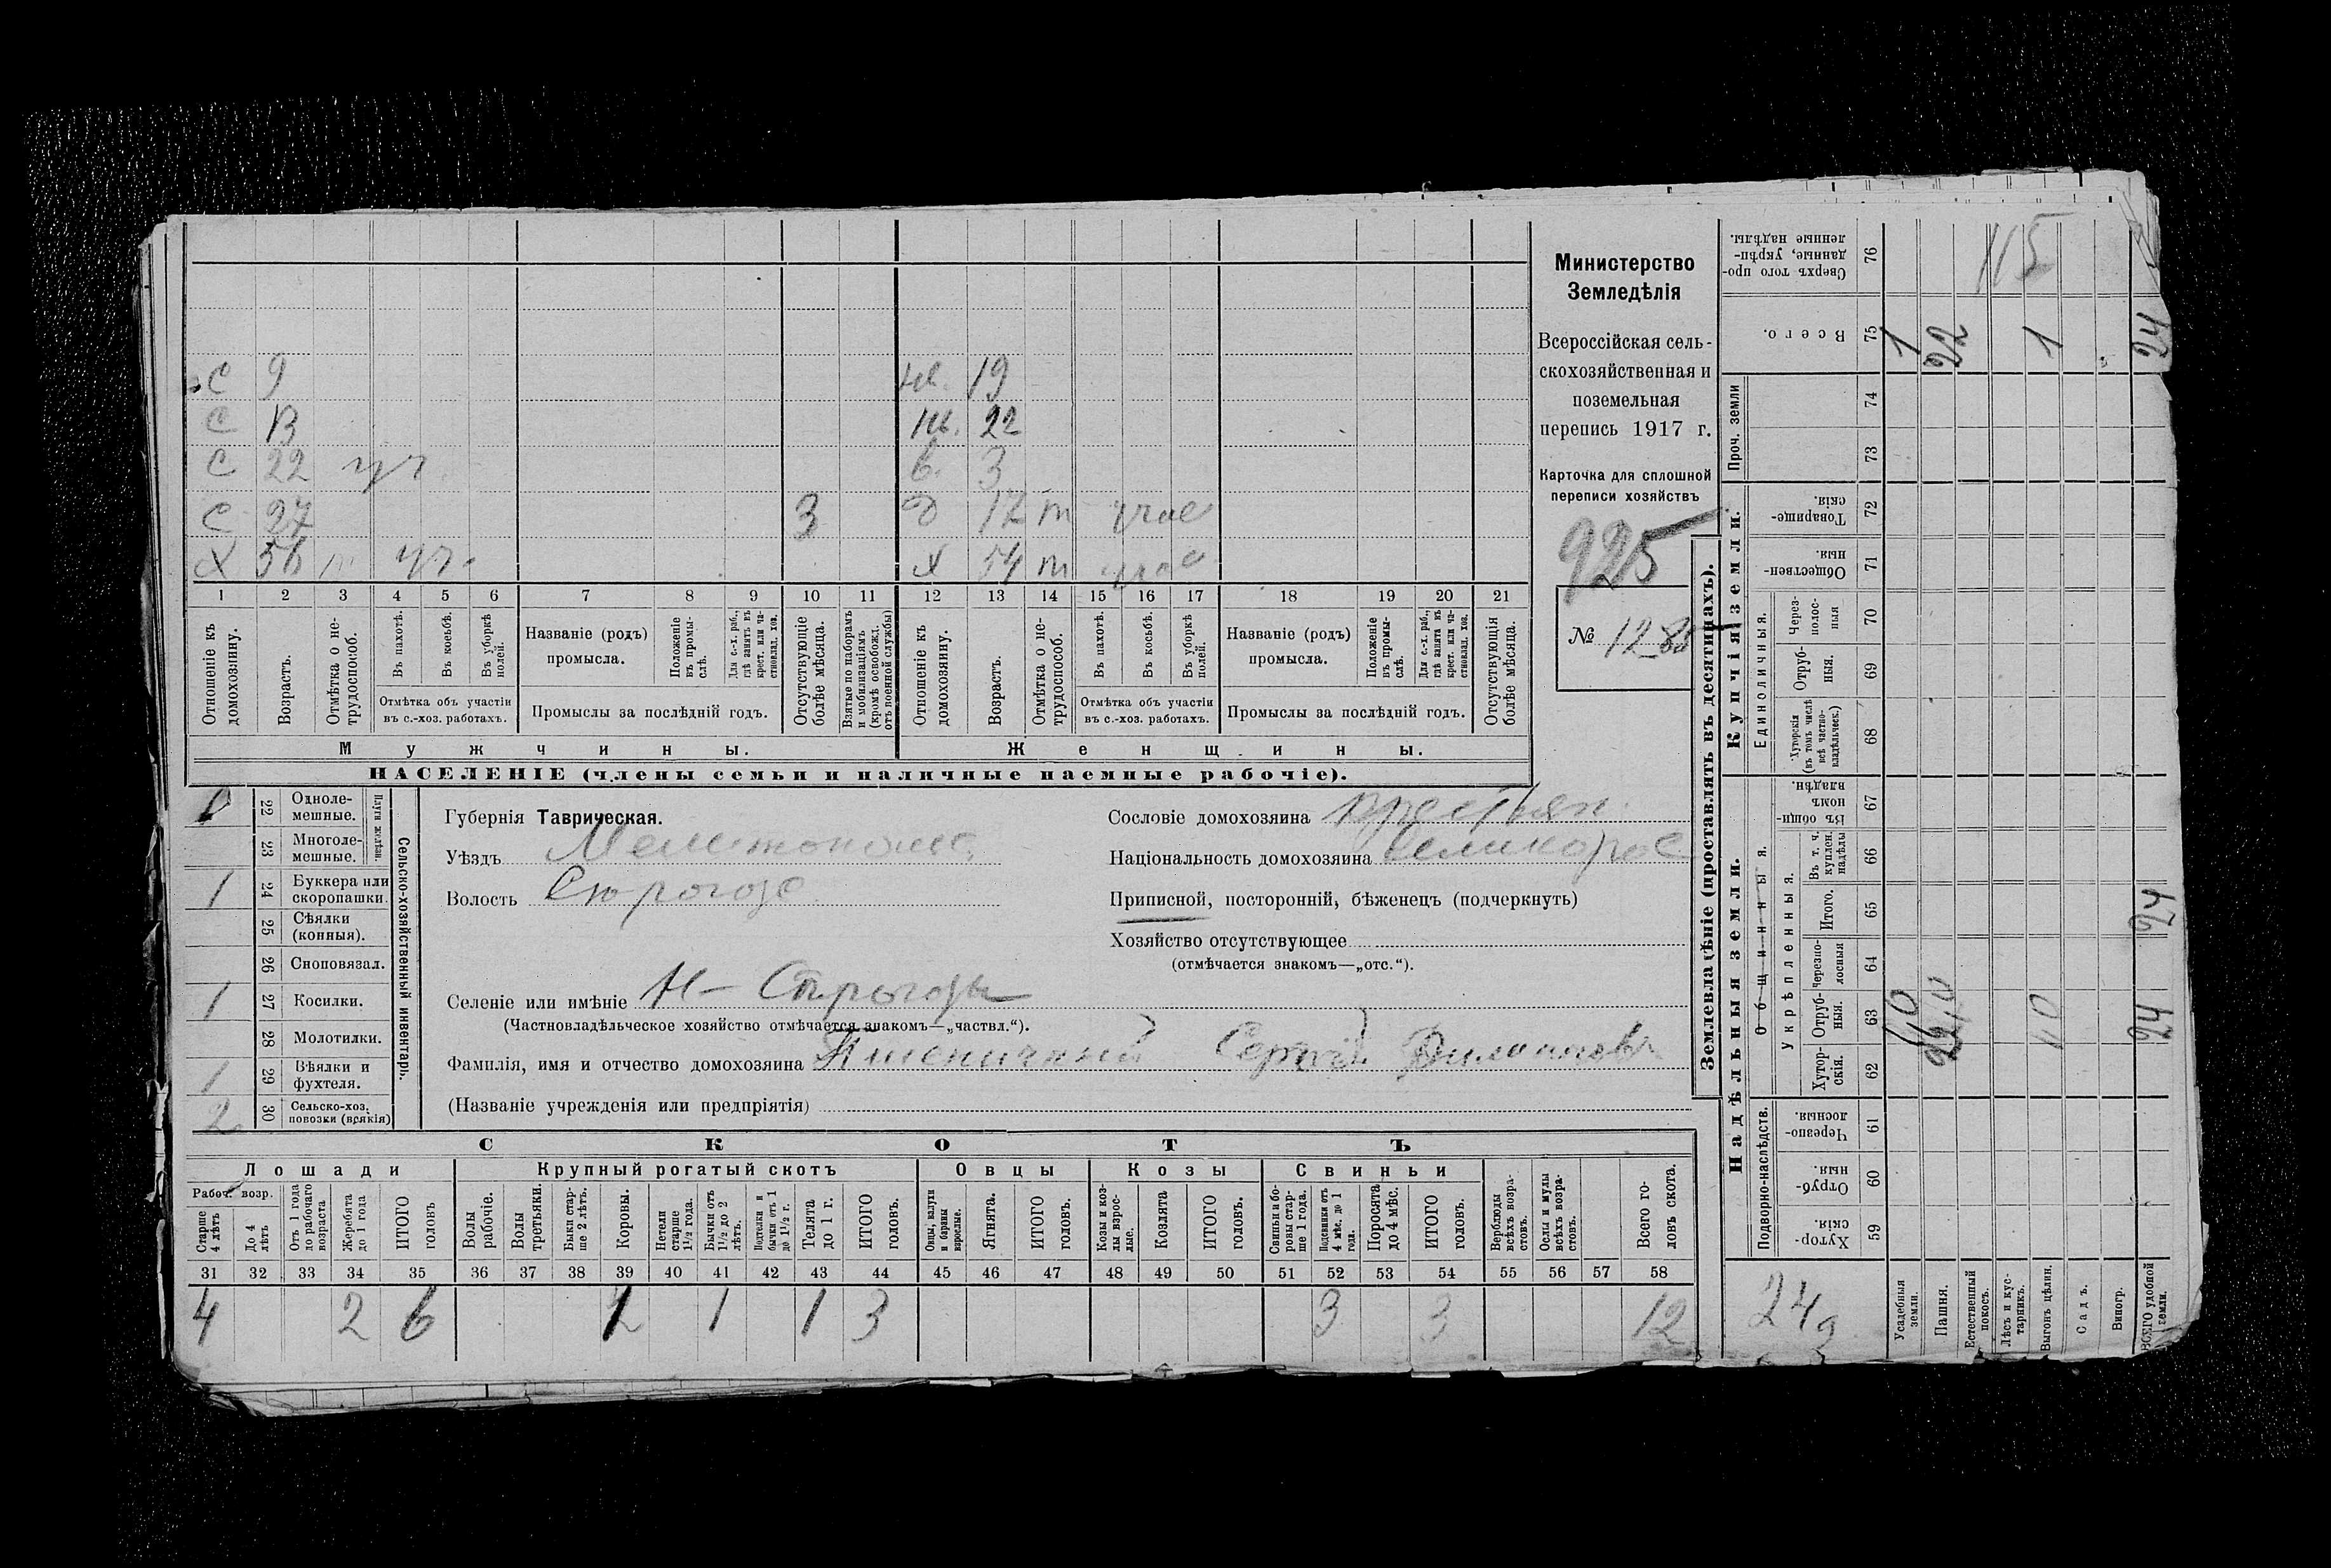 С 9 19
С 13 22
С 22 уч. в. 3
С 27 3 д 17 т
Х 56 т уч. Х 54 т
1 2 3 4 5 6 7 8 9 10 11 12 13 14 15 16 17 18 19 20 21
Отношеніе къ домохозяину.
Возрастъ.
Отмѣтка о нетрудоспособ.
Въ пахотѣ.
Въ косьбѣ.
Въ уборкѣ полей.
Отмѣтка объ участіи въ с.-хоз. работахъ.
Названіе (родъ) промысла.
Положеніе въ промыслѣ.
Для с.-х. раб., гдѣ занятъ въ крест. или частновлад. хоз.
Промыслы за послѣдній годъ.
Отсутствующіе болѣе мѣсяца.
Взятые по наборамъ и мобилизаціямъ (кромѣ освобожд. отъ военной службы)
Отношеніе къ домохозяину.
Возрастъ.
Отмѣтка о нетрудоспособ.
Въ пахотѣ.
Въ косьбѣ.
Въ уборкѣ полей.
Отмѣтка объ участіи въ с.-хоз. работахъ.
Названіе (родъ) промысла.
Положеніе въ промыслѣ.
Для с.-х. раб., гдѣ занятъ въ крест. или частновлад. хоз.
Промыслы за послѣдній годъ.
Отсутствующія болѣе мѣсяца.
Мужчины. Женщины.
НАСЕЛЕНІЕ (члены семьи и наличные наемные рабочіе).
Министерство
Земледѣлія
Всероссійская сель-
скохозяйственная и
поземельная
перепись 1917 г.
Карточка для сплошной
переписи хозяйствъ
925
№ 12
22 Однолемешные.
23 Многолемешные.
Плуги желѣзн.
1 24 Буккера или скоропашки.
25 Сѣялки (конныя).
26 Сноповязал.
1 27 Косилки.
28 Молотилки.
1 29 Вѣялки и фухтеля.
2 30 Сельско-хоз. повозки (всякія)
Сельско-хозяйственный инвентарь.
Губернія Таврическая.
Уѣздъ Мелитопольс.
Волость Сирогозс.
Селеніе или имѣніе Н- Сѣрогозы
(Частновладѣльческое хозяйство отмѣчается знакомъ—„частвл.“).
Фамилія, имя и отчество домохозяина Пшеничный Сергѣй
(Названіе учрежденія или предпріятія)
Сословіе домохозяина крестьян.
Національность домохозяина великорос
Приписной, посторонній, бѣженецъ (подчеркнуть)
Хозяйство отсутствующее
(отмѣчается знакомъ—„отс.“).
СКОТЪ
Лошади Крупный рогатый скотъ Овцы Козы Свиньи
Рабоч. возр.
Старше 4 лѣтъ
До 4 лѣтъ
Отъ 1 года до рабочаго возраста
Жеребята до 1 года
ИТОГО головъ
Волы рабочіе.
Волы третьяки.
Быки старше 2 лѣтъ.
Коровы.
Нетели старше 1½ года.
Бычки отъ 1½ до 2 лѣтъ.
Подтелки и бычки отъ 1 до 1½ г.
Телята до 1 г.
ИТОГО головъ.
Овцы, валухи и бараны взрослые.
Ягнята.
ИТОГО головъ.
Козы и козлы взрослые.
Козлята
ИТОГО головъ.
Свиньи и боровы старше 1 года.
Подсвинки отъ 4 мѣс. до 1 года.
Поросята до 4 мѣс.
ИТОГО головъ.
Верблюды всѣхъ возрастовъ.
Ослы и мулы всѣхъ возрастовъ.
Всего головъ скота.
31 32 33 34 35 36 37 38 39 40 41 42 43 44 45 46 47 48 49 50 51 52 53 54 55 56 57 58
4 2 6 1 1 3 3 3 12
Землевладѣніе (проставлять въ десятинахъ).
Надѣльныя земли. Купчія земли.
Подворно-наслѣдств.
Хуторскія 59
Отрубныя. 60
Черезполосныя. 61
Общинныя.
Укрѣпленныя.
Хуторскія. 62
Отрубныя. 63
Черезполосныя 64
Итого. 65
Въ т. ч. куплен. надѣлы 66
Въ общинномъ владѣн. 67
Единоличныя.
Хуторскія (въ томъ числѣ всѣ частновладѣльческ.) 68
Отрубныя. 69
Черезполосныя 70
Общественныя 71
Товарищескія. 72
Проч. земли
73 74
Всего. 75
Сверхъ того проданные, укрѣпленные надѣлы. 76
115
1 22 1 24
24
22,0 24
24
Усадебныя земли.
Пашня.
Естественный покосъ.
Лѣсъ и кустарникъ.
Выгонъ цѣлин.
Садъ.
Виногр.
ВСЕГО удобной земли.